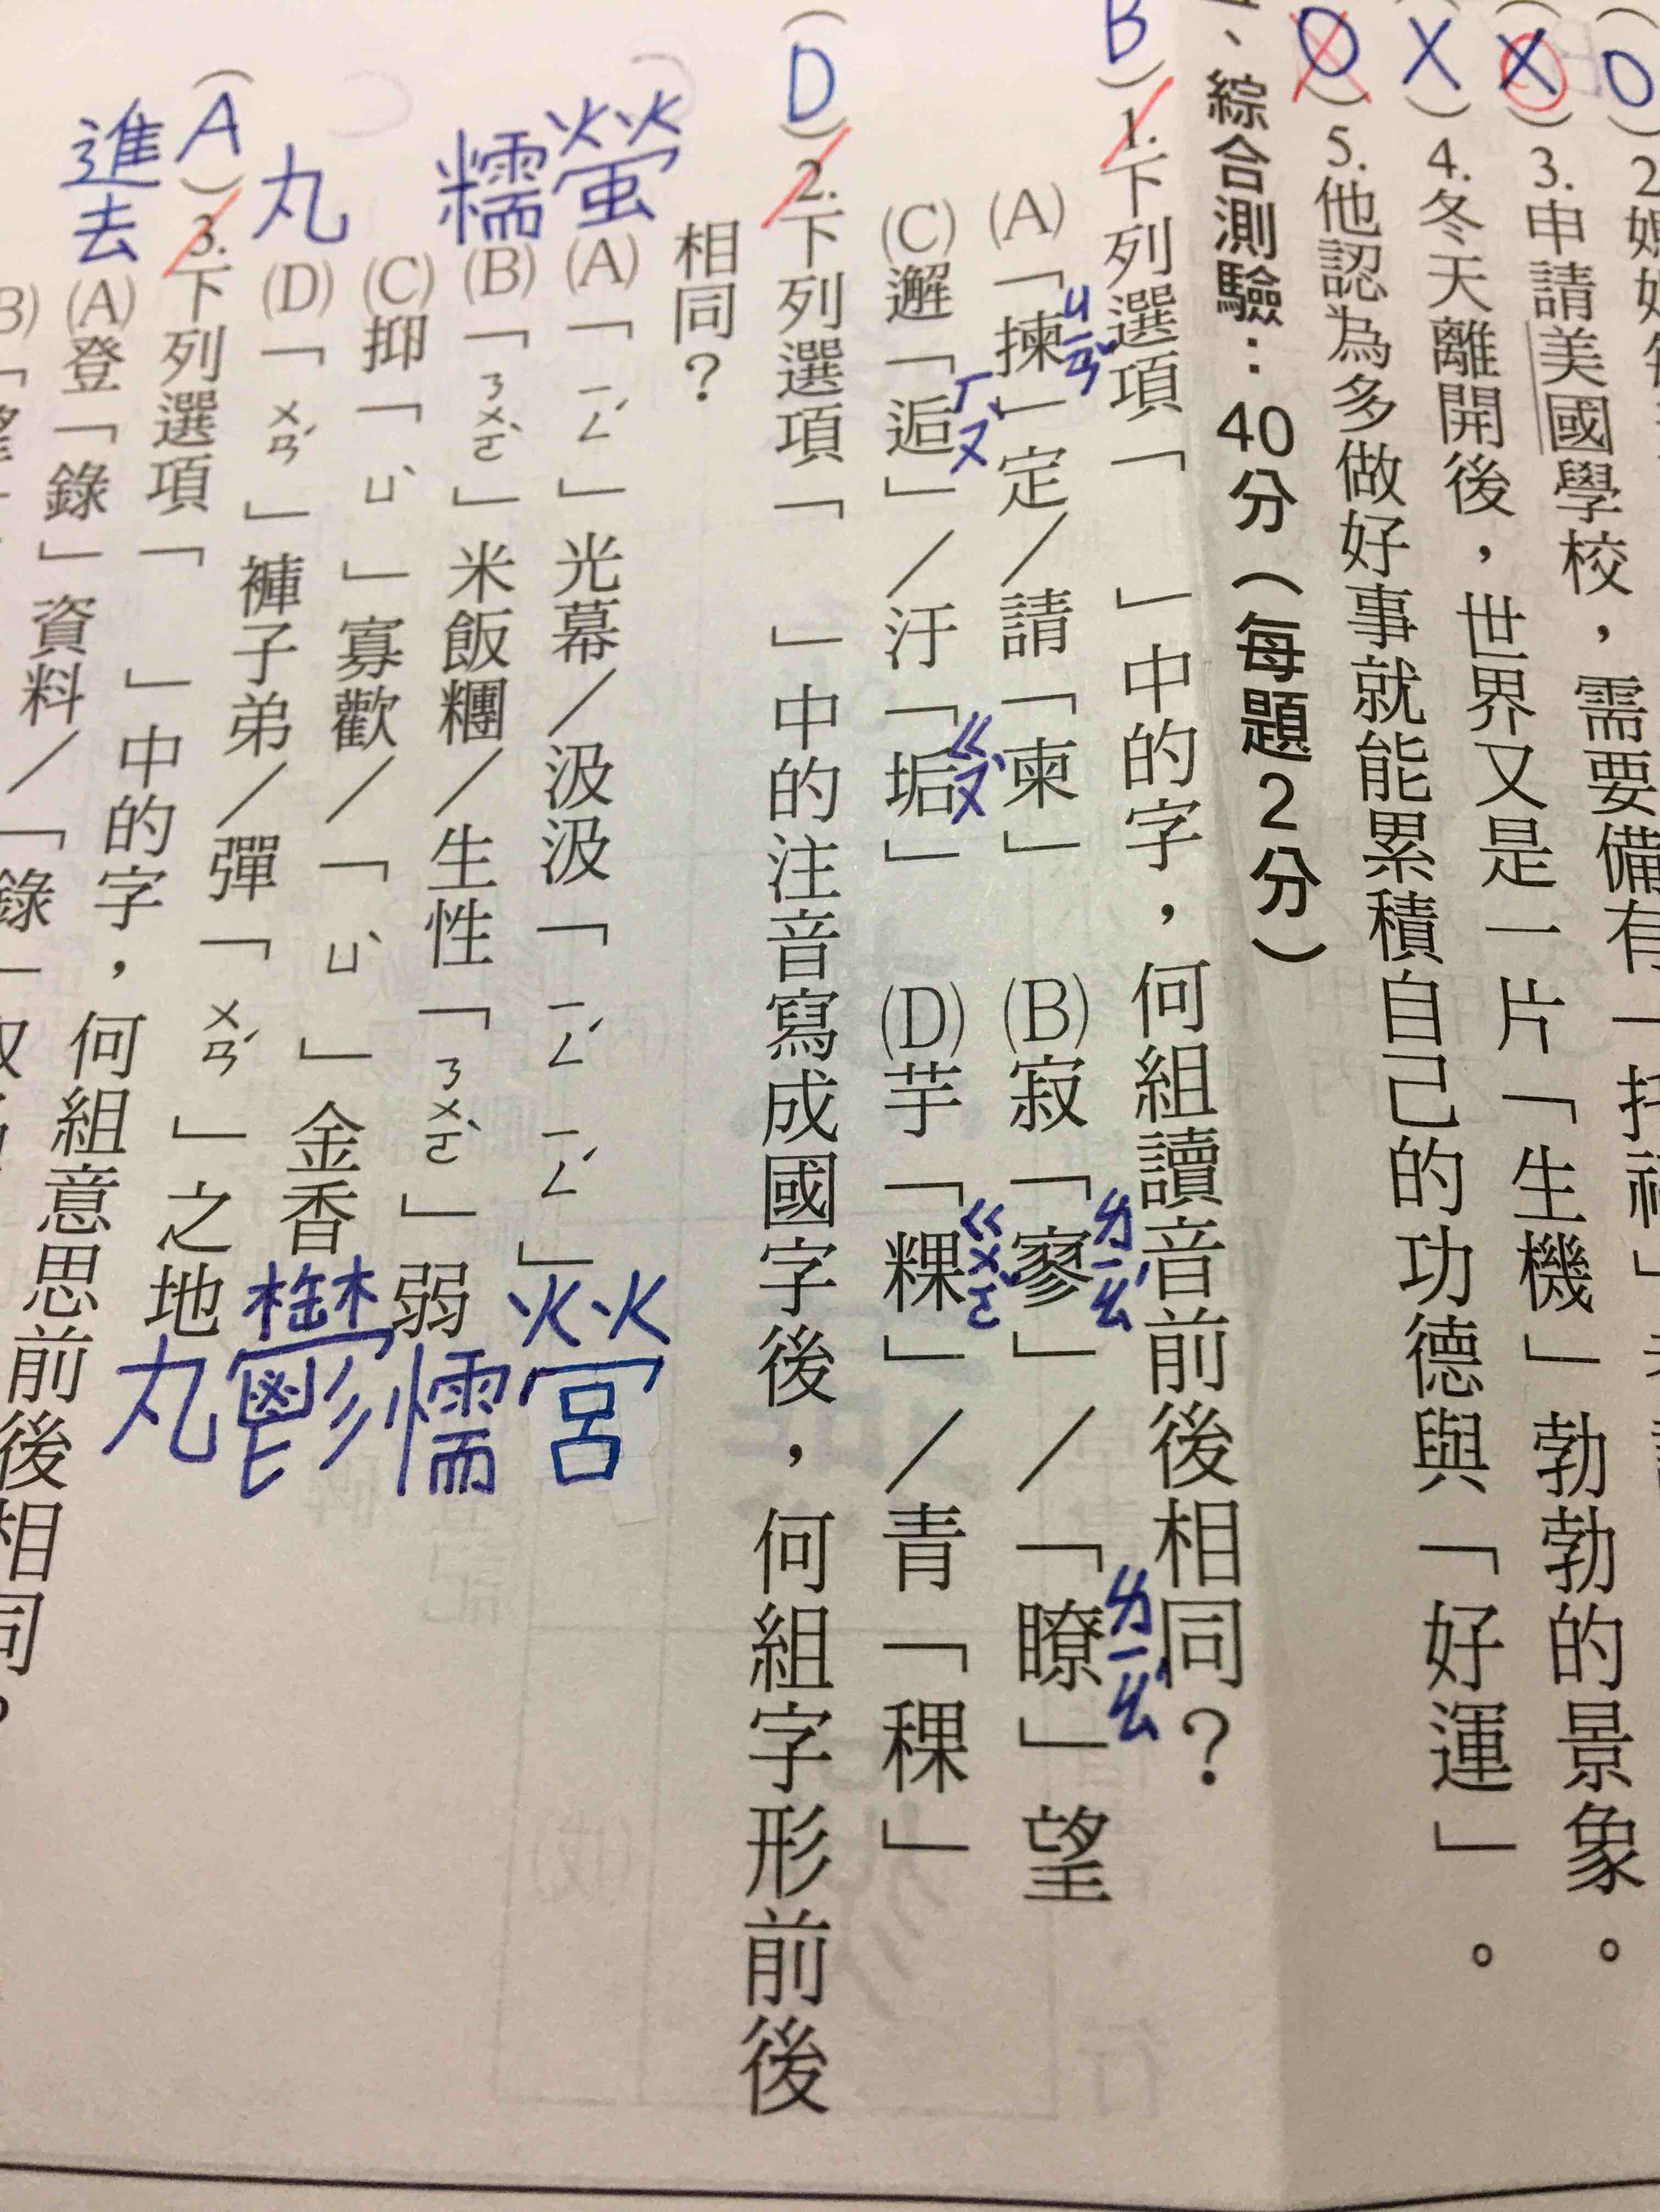 (O)2.
(X)3.申請美國學校，需要備有一
(X)4.冬天離開後，世界又是一片「生機」勃勃的景象。
(O)5.他認為多做好事就能累積自己的功德與「好運」。
、綜合測驗：40分（每題2分）
(B)1.下列選項「 」中的字，何組讀音前後相同？
(A)「揀」定／請「柬」 (B)寂「寥」／「瞭」望
ㄐㄧㄢˇ ㄌㄧㄠˊ ㄌㄧㄠˊ
(C)邂「逅」／汙「垢」 (D)芋「粿」／青「稞」
ㄏㄡˋ ㄍㄡˋ ㄍㄨㄛˇ
(D)2.下列選項「 」中的注音寫成國字後，何組字形前後
相同？
(A)「ㄧㄥˊ」光幕／汲汲「ㄧㄥˊㄧㄥˊ」
螢 營
(B)「ㄋㄨㄛˋ」米飯糰／生性「ㄋㄨㄛˋ」弱
糯 懦
(C)抑「ㄩˋ」寡歡／「ㄩˋ」金香
鬱
(D)「ㄨㄢˊ」褲子弟／彈「ㄨㄢˊ」之地
丸 丸
(A)3.下列選項「 」中的字，何組意思前後相同？
進去
(A)登「錄」資料／「錄」取